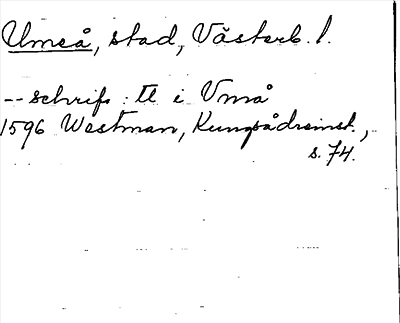 Umeå, stad, Västerb. l.
-- schrifs: tt i Vmå
1596 Westman, Kungsådreinst.,
s. 74.